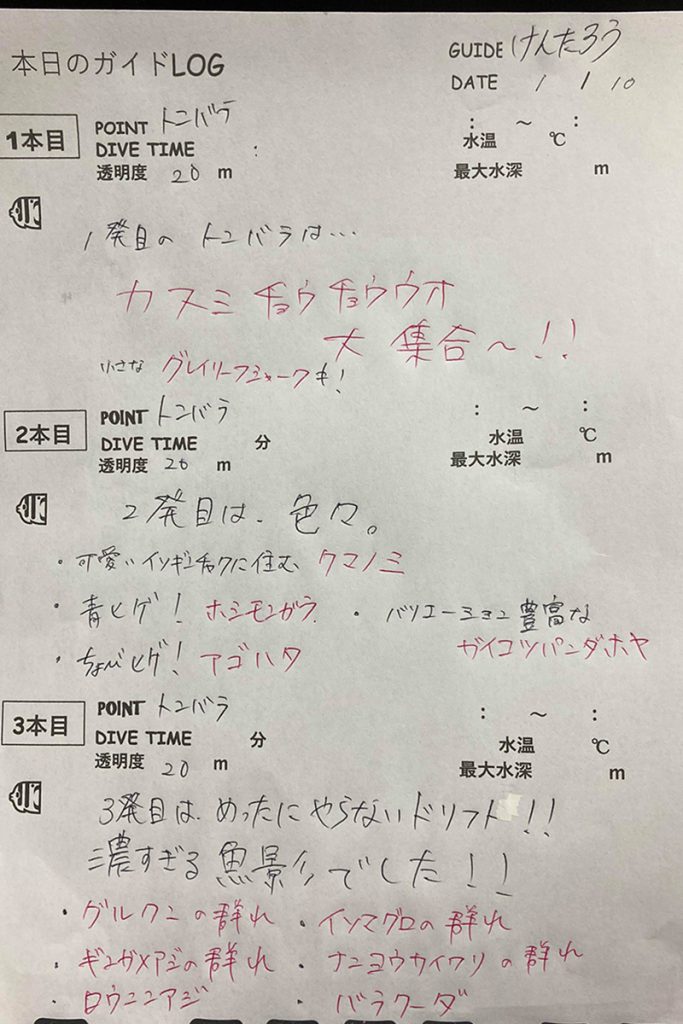 本日のガイドLOG
GUIDE けんたろう
DATE 1 / 10
1本目
POINT トンバラ
: ~ :
DIVE TIME :
水温 ℃
透明度 20 m
最大水深 m
1発目の トンバラは…
カスミチョウチョウウオ
大集合~!!
小さな グレイリーフシャークも!
2本目
POINT トンバラ
: ~ :
DIVE TIME 分
水温 ℃
透明度 20 m
最大水深 m
2発目は、色々。
・可愛いイソギンチャクに住む クマノミ
・青ヒゲ! ホシモンガラ
・バリエーション豊富な
ガイコツパンダホヤ
・ちょびヒゲ! アゴハタ
3本目
POINT トンバラ
: ~ :
DIVE TIME 分
水温 ℃
透明度 20 m
最大水深 m
3発目は、めったにやらないドリフト!!
濃すぎる魚影でした!!
・グルクンの群れ ・イソマグロの群れ
・ギンガメアジの群れ ・ナンヨウカイワリの群れ
・ロウニンアジ ・バラクーダ